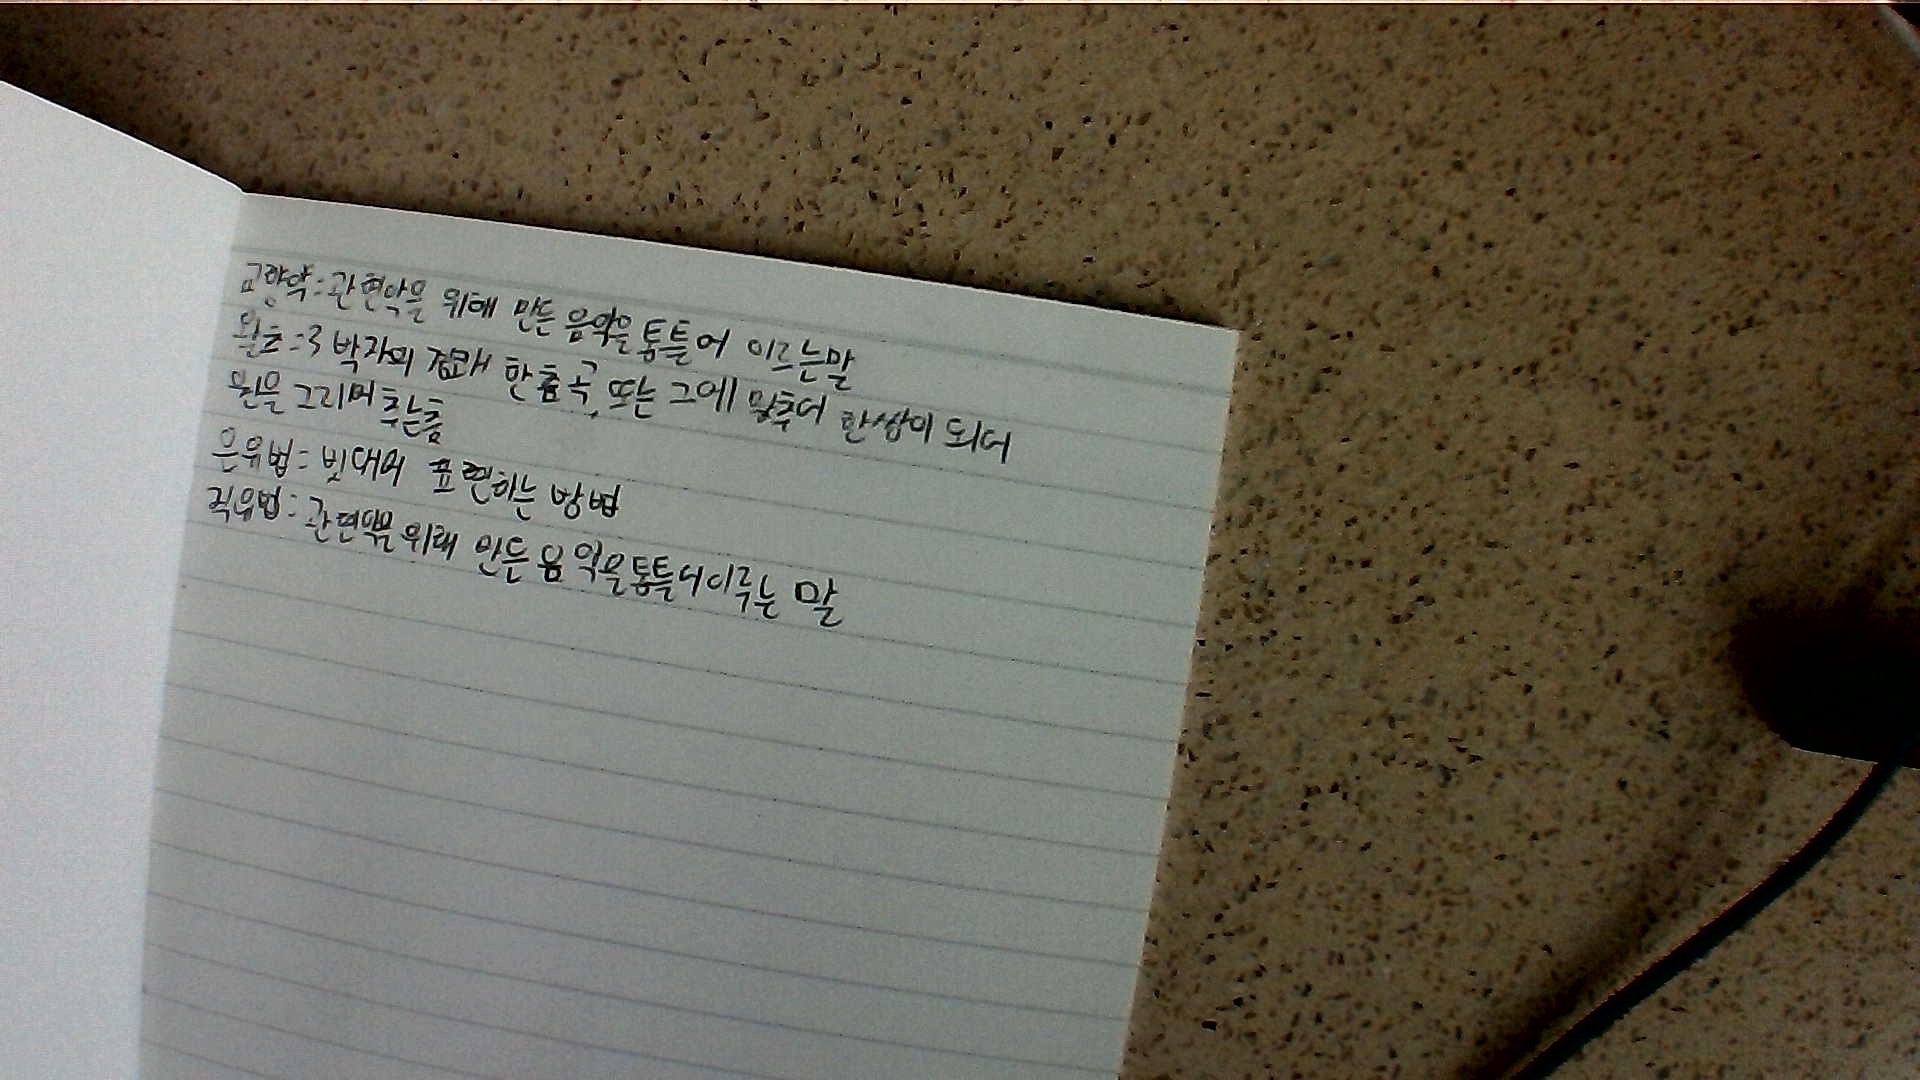 교향악:관현악을 위해 만든 음악을 통틀어 이르는말
왈츠:3박자의 경쾌한 춤곡, 또는 그에 맞추어 한쌍이 되어
원을 그리며 추는춤
은유법:빗대어 표현하는 방법
직유법:관현악을 위해 만든 음악을통틀어이루는 말